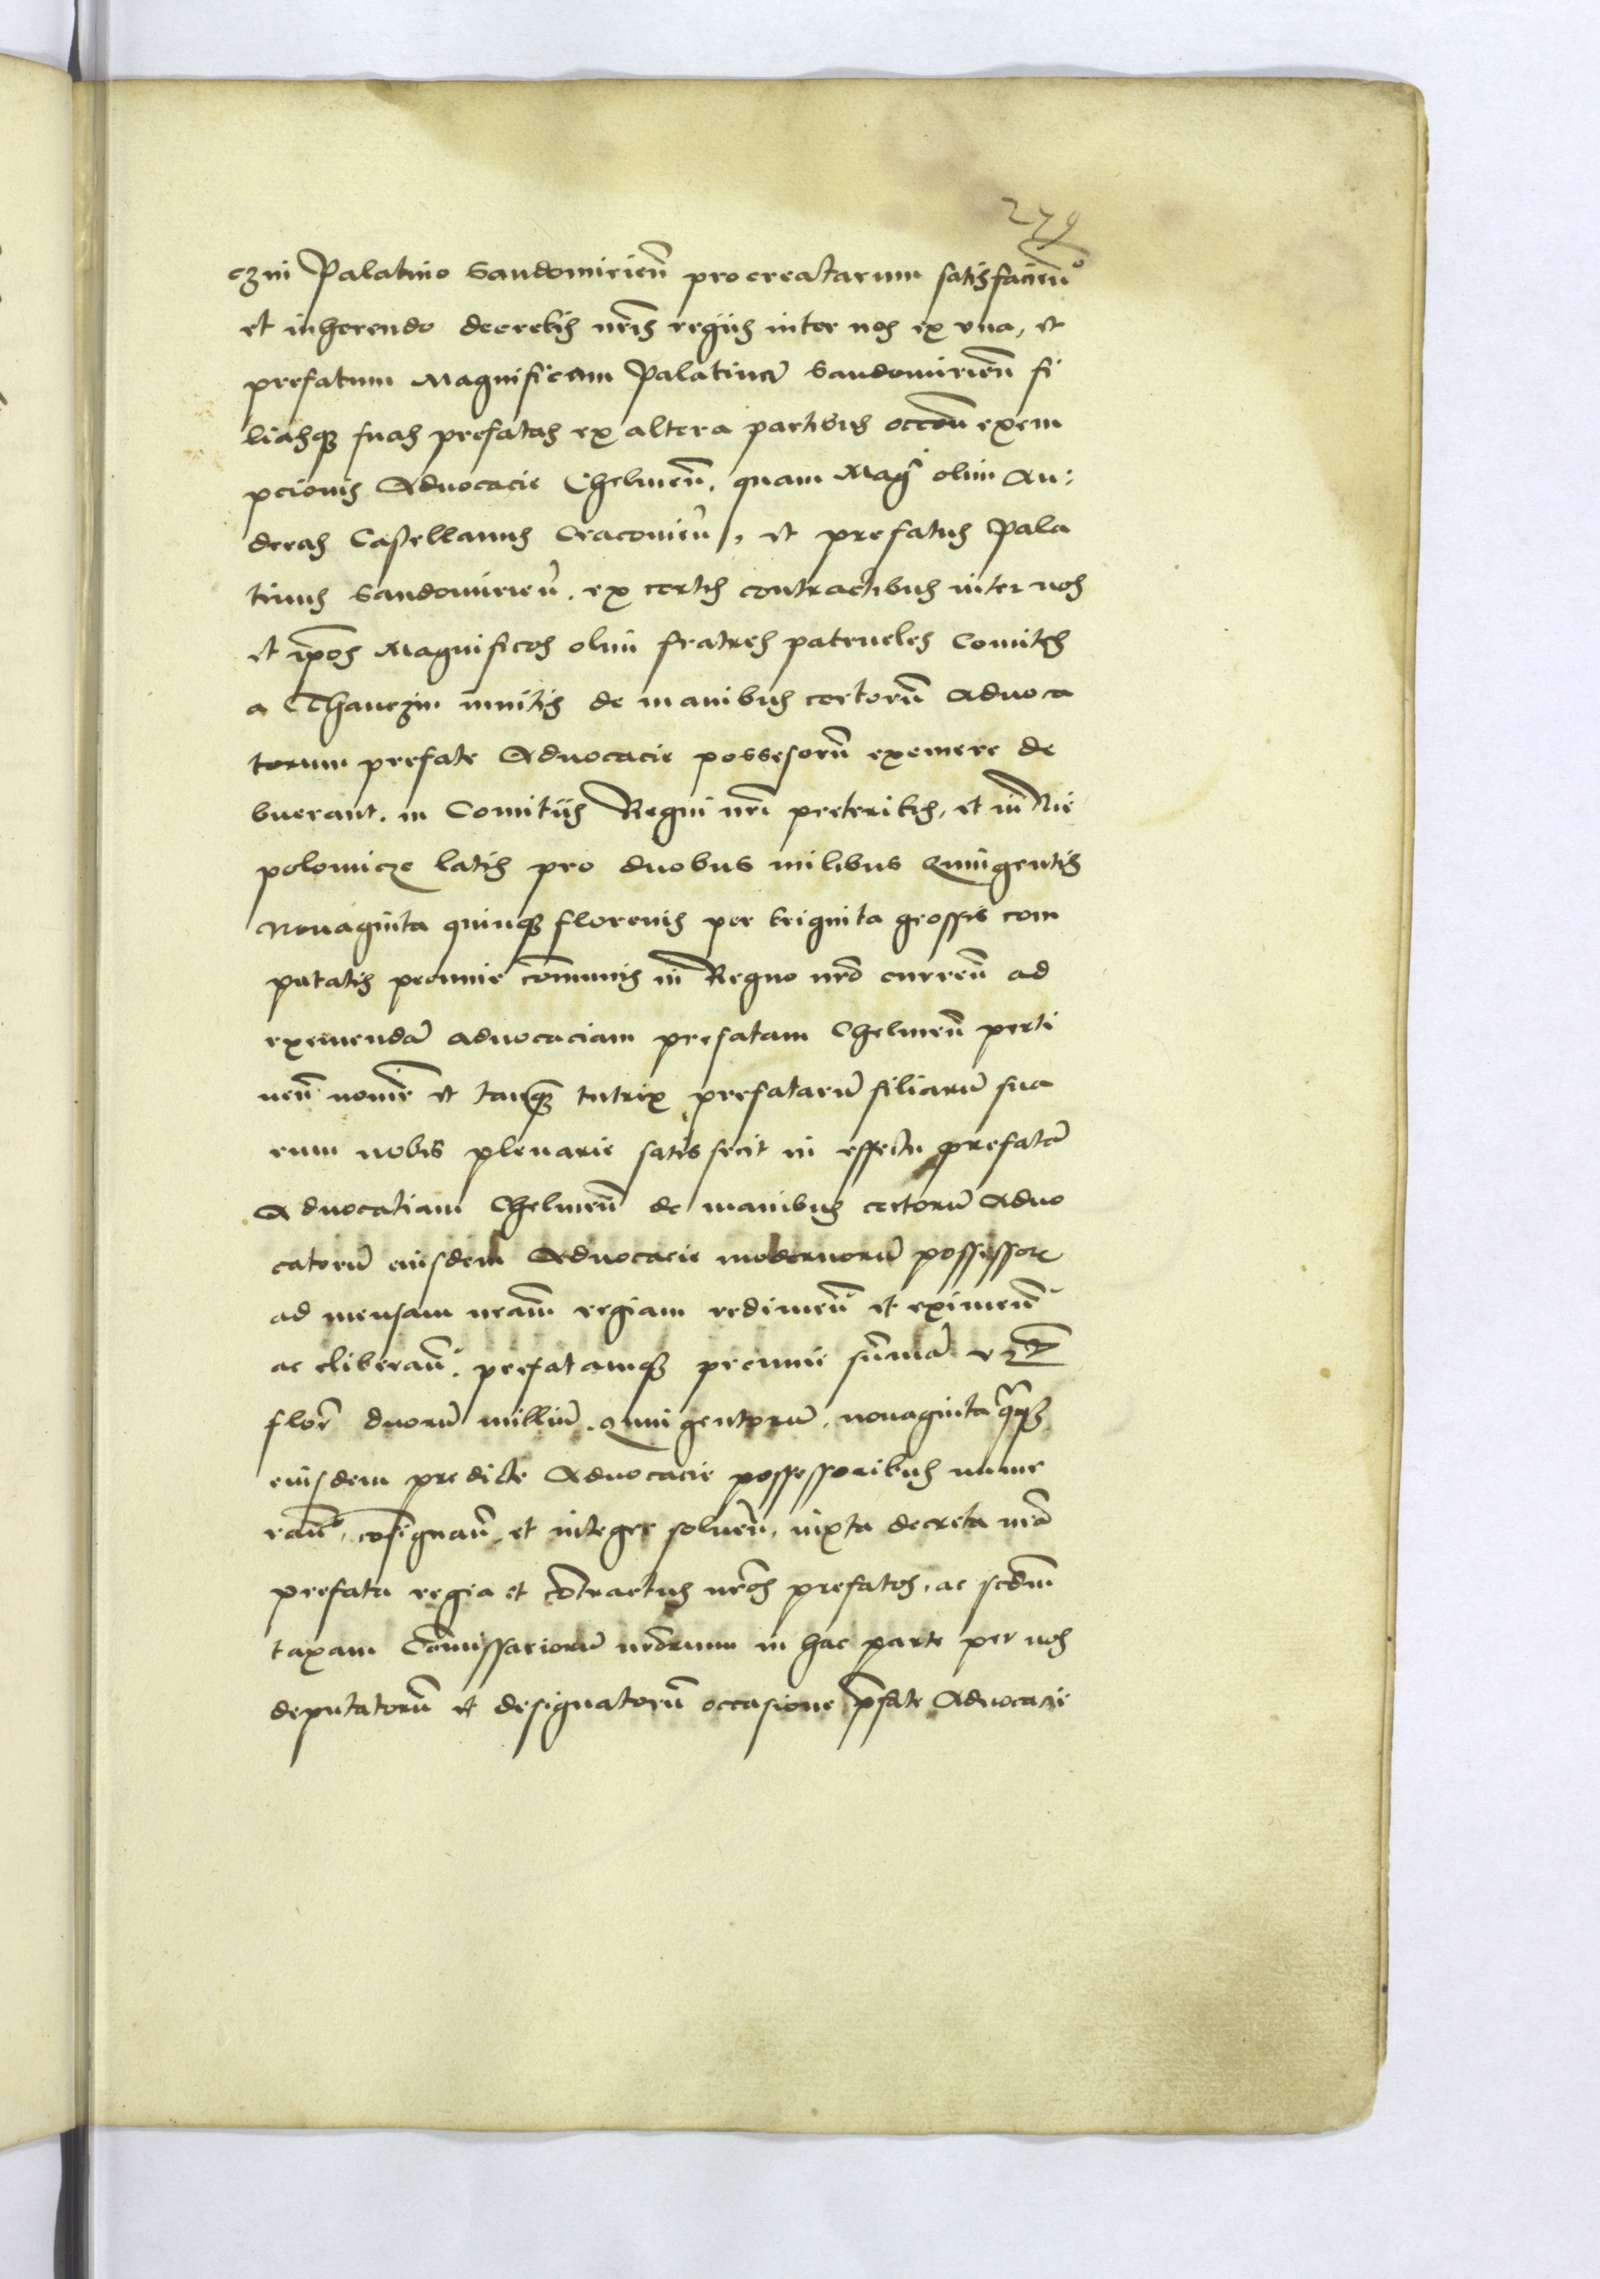 279
czin Palatino Sandomirieñ procreatarum satisfacieñ
et inherendo decretis nr̃is regiis inter nos ex vna, et
prefatum Magnificum Palatinũ Sandomirieñ fi
liasq suas prefatas ex altera partibus occõe exem
pcionis Aduocacie Chelmeñ, quam Mag̃ olim An:
dreas Castellanus Cracouieñ, et prefatus Pala
tinus Sandomirieñ. ex certis contractibus inter nos
et ip̃os Magnificos olim fratres patrueles Comites
a Thanczin initis de manibus certorũ Aduoca
torum prefate Aduocacie possesorũ exemere de
buerant. in Comitiis Regni nr̃i preteritis, et in Nie
polomicze latis pro duobus milibus Quingentis
Nonaginta quinq florenis per triginta grossis com
putatis pecunie cõmunis in Regno nr̃o curreñ ad
exemendã aduocaciam prefatam Chelmeñ perti
neñ noĩe et tanq̃ tutrix prefatarũ filiarũ sua
rum nobis plenarie satisfecit in effectu prefatã
Aduocatiam Chelmeñ de manibus certorũ Aduo
catorũ eiusdem Aduocacie modernorũ possessorũ
ad mensam nr̃am regiam redimeñ et eximeñ
ac eliberañ. prefatamq pecunie sum̃ã vtz
flor̃ duorũ milliũ. Quingentorũ. nonaginta q̃nq
eiusdem predicte Aduocacie possessoribus nume
rañ, cõsignañ et integre solueñ, iuxta decreta nr̃a
prefata regia et cõtractus nr̃os prefatos, ac secdũm
taxam Cõmissariorũ nr̃orum in hac parte per nos
deputatorũ et designatorũ occasione p̃fate Aduocacie